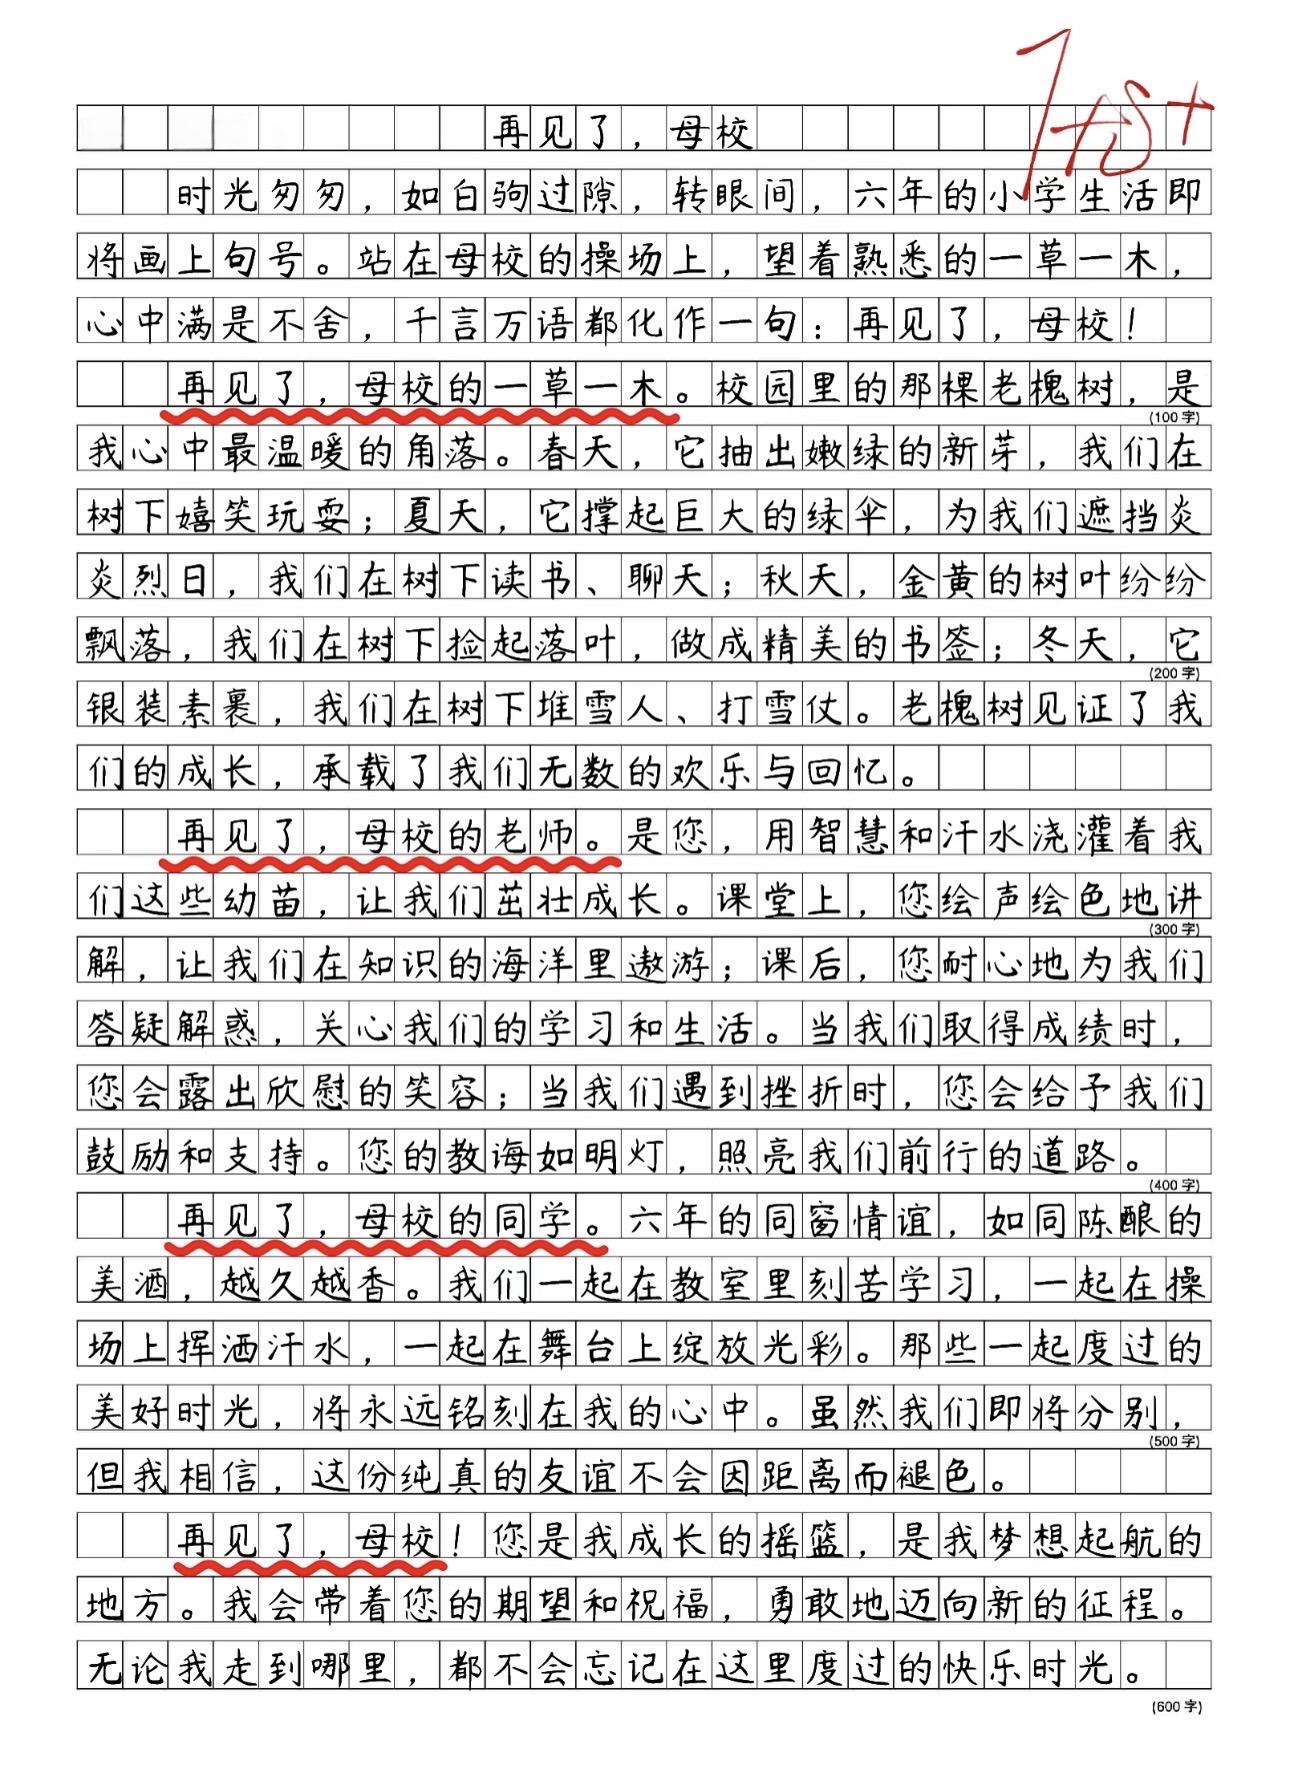 再见了，母校
时光匆匆，如白驹过隙，转眼间，六年的小学生活即
将画上句号。站在母校的操场上，望着熟悉的一草一木，
心中满是不舍，千言万语都化作一句：再见了，母校！
再见了，母校的一草一木。校园里的那棵老槐树，是
(100字)
我心中最温暖的角落。春天，它抽出嫩绿的新芽，我们在
树下嬉笑玩耍；夏天，它撑起巨大的绿伞，为我们遮挡炎
炎烈日，我们在树下读书、聊天；秋天，金黄的树叶纷纷
飘落，我们在树下捡起落叶，做成精美的书签；冬天，它
(200字)
银装素裹，我们在树下堆雪人、打雪仗。老槐树见证了我
们的成长，承载了我们无数的欢乐与回忆。
再见了，母校的老师。是您，用智慧和汗水浇灌着我
们这些幼苗，让我们茁壮成长。课堂上，您绘声绘色地讲
(300字)
解，让我们在知识的海洋里遨游；课后，您耐心地为我们
答疑解惑，关心我们的学习和生活。当我们取得成绩时，
您会露出欣慰的笑容；当我们遇到挫折时，您会给予我们
鼓励和支持。您的教诲如明灯，照亮我们前行的道路。
(400字)
再见了，母校的同学。六年的同窗情谊，如同陈酿的
美酒，越久越香。我们一起在教室里刻苦学习，一起在操
场上挥洒汗水，一起在舞台上绽放光彩。那些一起度过的
美好时光，将永远铭刻在我的心中。虽然我们即将分别，
(500字)
但我相信，这份纯真的友谊不会因距离而褪色。
再见了，母校！您是我成长的摇篮，是我梦想起航的
地方。我会带着您的期望和祝福，勇敢地迈向新的征程。
无论我走到哪里，都不会忘记在这里度过的快乐时光。
(600字)